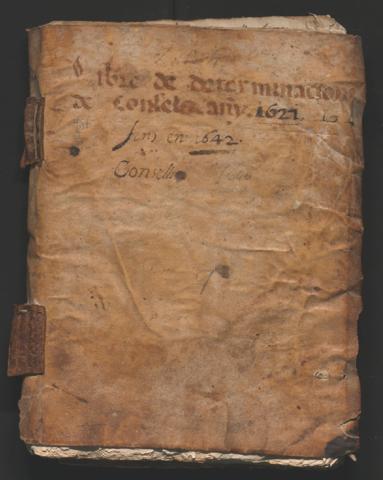 Libre de determinacions
de Consells añy. 1621
fins en 1642.
Consells